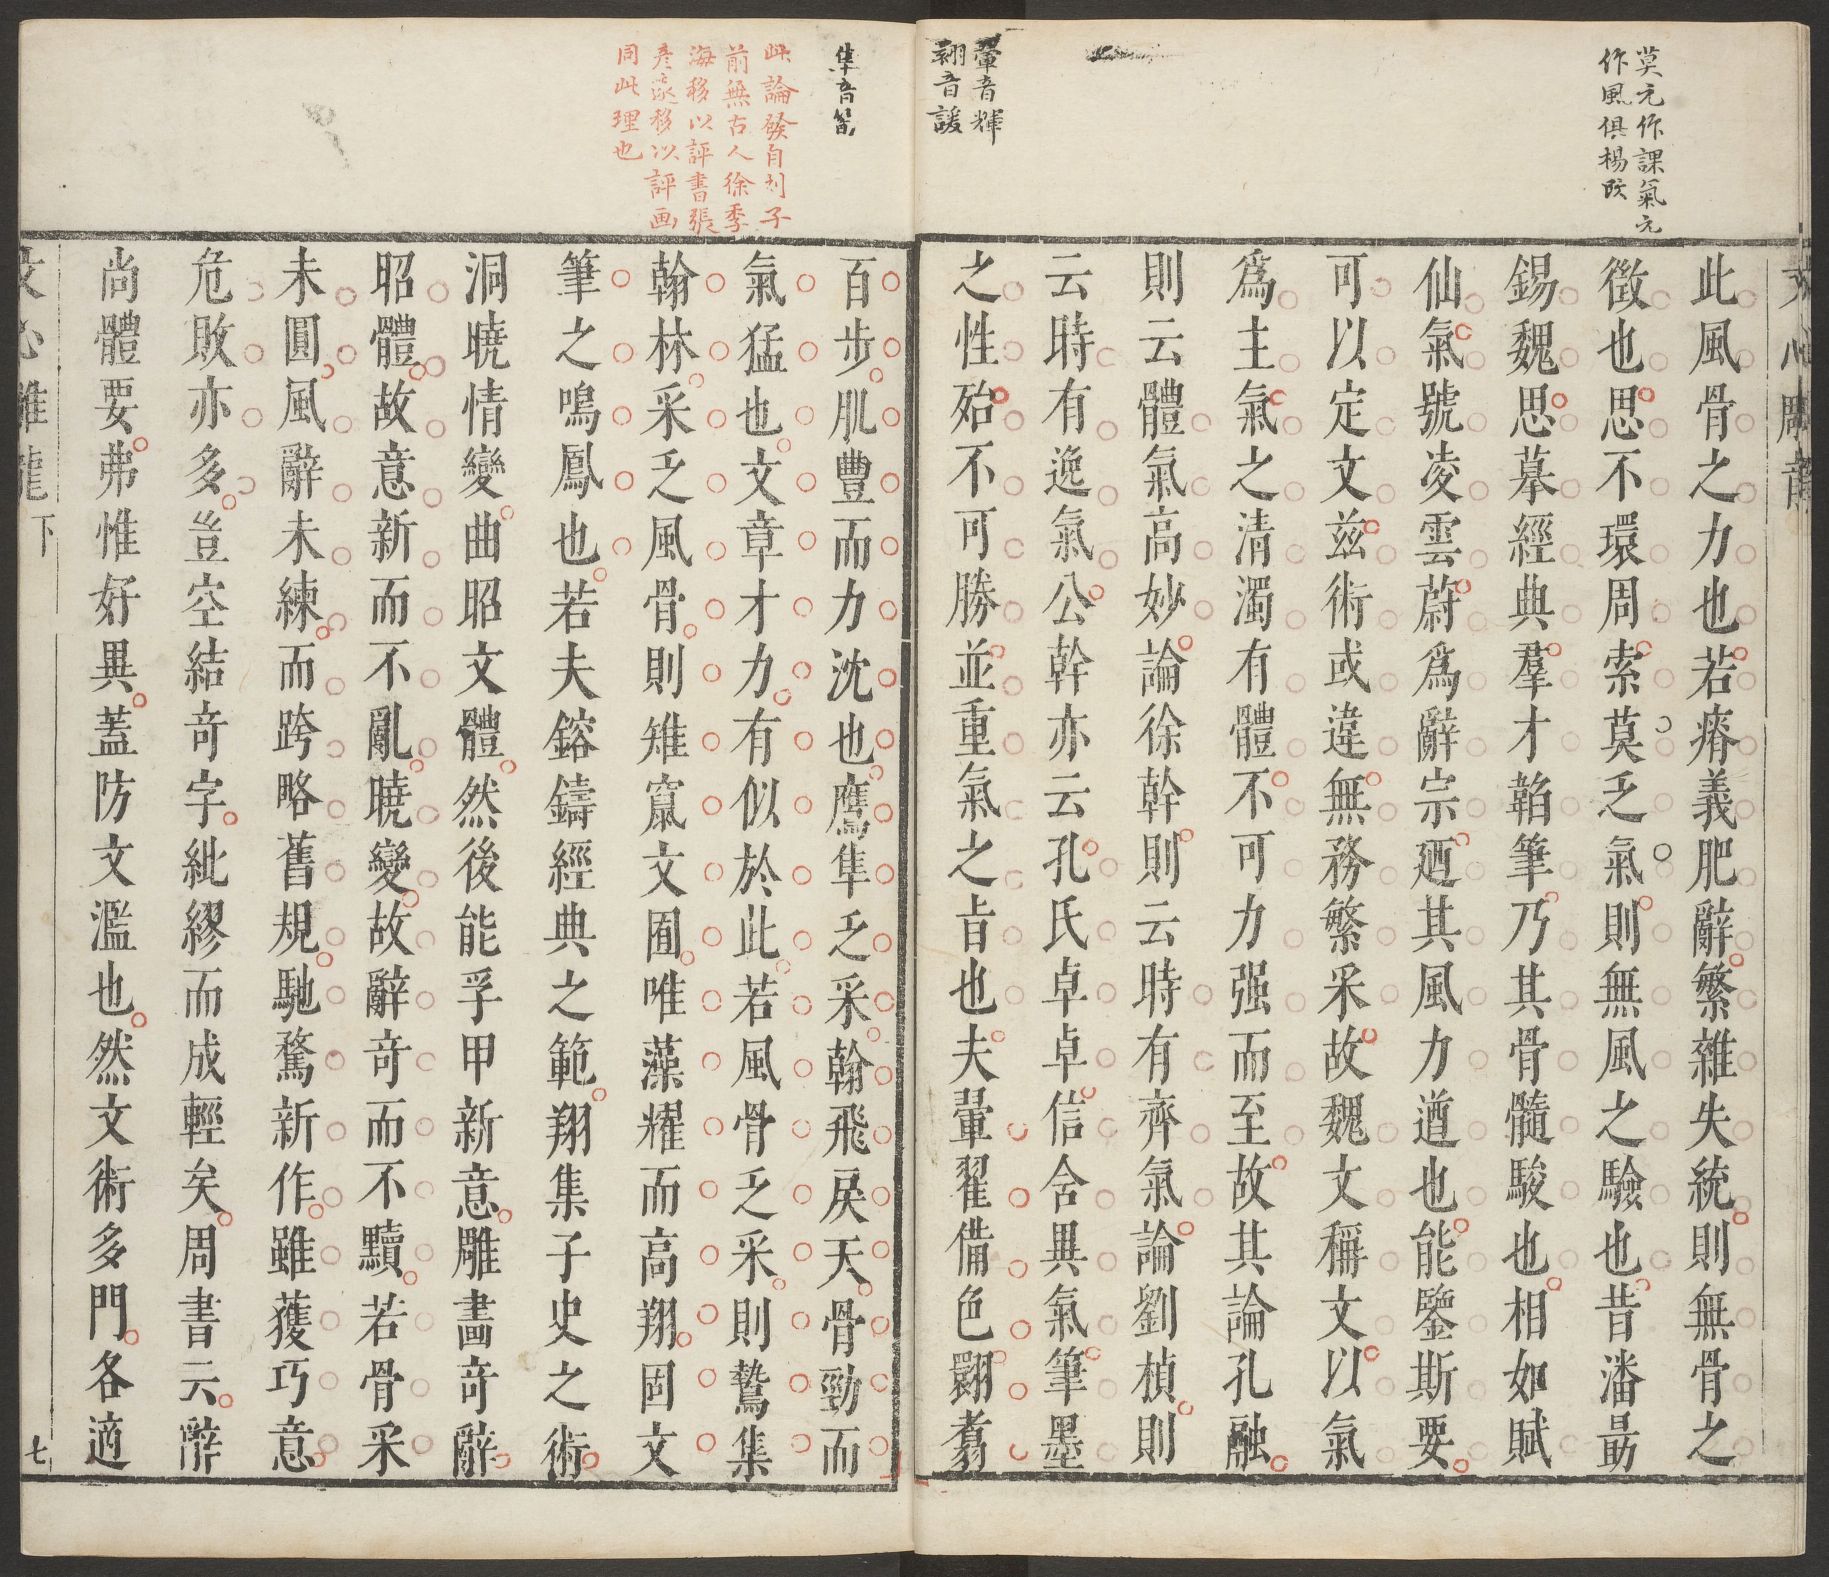 莫元作課氣元
作風俱楊改
翬音輝
翾音諼
文心雕龍
此風骨之力也若瘠義肥辭繁雜失統則無骨之
徵也思不環周索莫乏氣則無風之驗也昔潘勗
錫魏思摹經典羣才韜筆乃其骨髓駿也相如賦
仙氣號凌雲蔚爲辭宗廼其風力遒也能鑒斯要
可以定文兹術或違無務繁采故魏文稱文以氣
爲主氣之清濁有體不可力强而至故其論孔融
則云體氣高妙論徐幹則云時有齊氣論劉楨則
云時有逸氣公幹亦云孔氏卓卓信含異氣筆墨
之性殆不可勝並重氣之㫖也夫翬翟備色翾翥
隼音笋
此論發自劉子
前無古人徐季
海移以評書張
彥遠移以評画
同此理也
百步肌豐而力沈也鷹隼乏采翰飛戾天骨勁而
氣猛也文章才力有似於此若風骨乏采則鷙集
翰林采乏風骨則雉竄文囿唯藻耀而高翔固文
筆之鳴鳳也若夫鎔鑄經典之範翔集子史之術
洞曉情變曲昭文體然後能孚甲新意雕畫奇辭
昭體故意新而不亂曉變故辭奇而不黷若骨采
未圓風辭未練而跨略舊規馳騖新作雖獲巧意
危敗亦多豈空結奇字紕繆而成輕矣周書云辭
尚體要弗惟好異蓋防文濫也然文術多門各適
文心雕龍 下
七